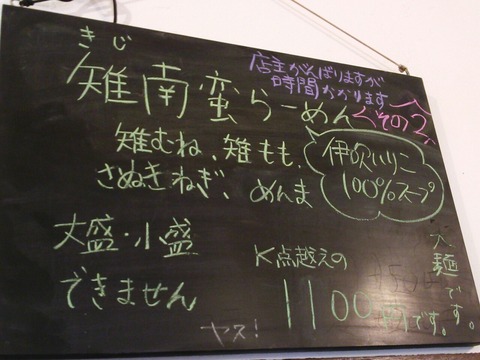 きじ
雉南蛮らーめん
店主がんばりますが
時間かかります
くその2
雉むね、雉もも、
さぬきねぎ、めんま
伊吹いりこ
100%スープ
大盛・小盛
できません
K点越えの
1100円です。
麺です。
ヤス!